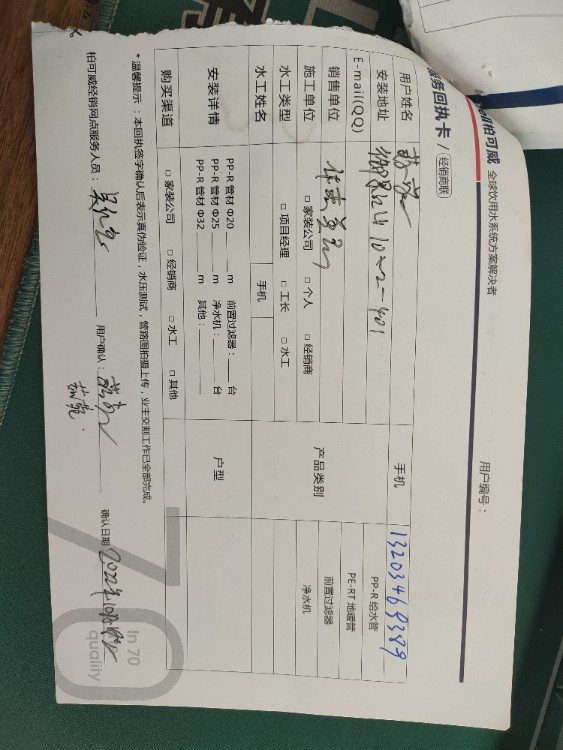 柏可威 全球饮用水系统方案解决者
服务回执卡 / (经销商联)
用户编号：
用户姓名
手机 13203469389
安装地址 10-2-401
PP-R 给水管
E-mail(QQ)
PE-RT 地暖管
销售单位
产品类别
前置过滤器
施工单位 □ 家装公司 □ 个人 □ 经销商
净水机
水工类型 □ 项目经理 □ 工长 □ 水工
水工姓名 手机
安装详情
PP-R 管材 Φ20 ____ m 前置过滤器：____ 台
PP-R 管材 Φ25 ____ m 净水机：____ 台
PP-R 管材 Φ32 ____ m 其他：____
户型
购买渠道 □ 家装公司 □ 经销商 □ 水工 □ 其他
* 温馨提示：本回执签字确认后表示真伪验证，水压测试，管路图拍摄上传，业主交割工作已全部完成。
柏可威经销网点服务人员：
用户确认：
确认日期
70
In 70
quality